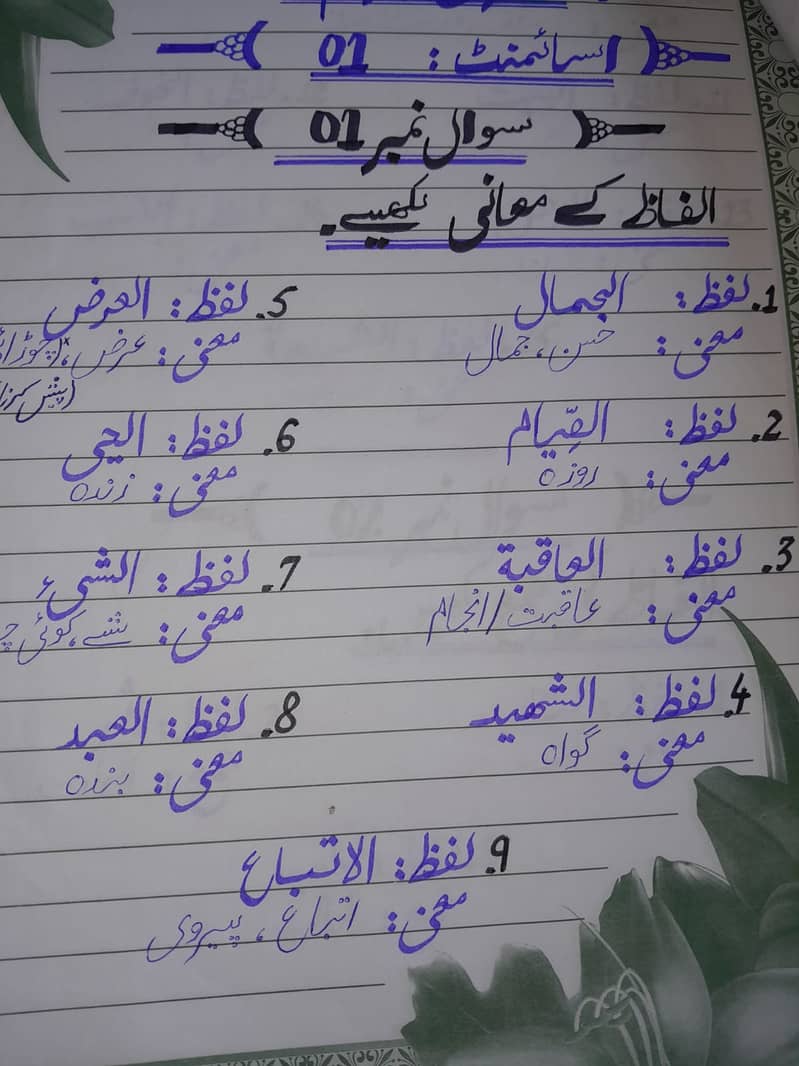 اسائمنٹ: 01
سوال نمبر 01
الفاظ کے معانی لکھیے۔
1. لفظ: الجمال
معنی: حسن، جمال
2. لفظ: القِیام
معنی: روزہ
3. لفظ: العاقبة
معنی: عاقبت/انجام
4. لفظ: الشھید
معنی: گواہ
5. لفظ: العرض
معنی: عرض،
6. لفظ: الحی
معنی: زندہ
7. لفظ: الشیء
معنی: شے، کوئی
8. لفظ: العبد
معنی: بندہ
9. لفظ: الاتباع
معنی: اتباع، پیروی